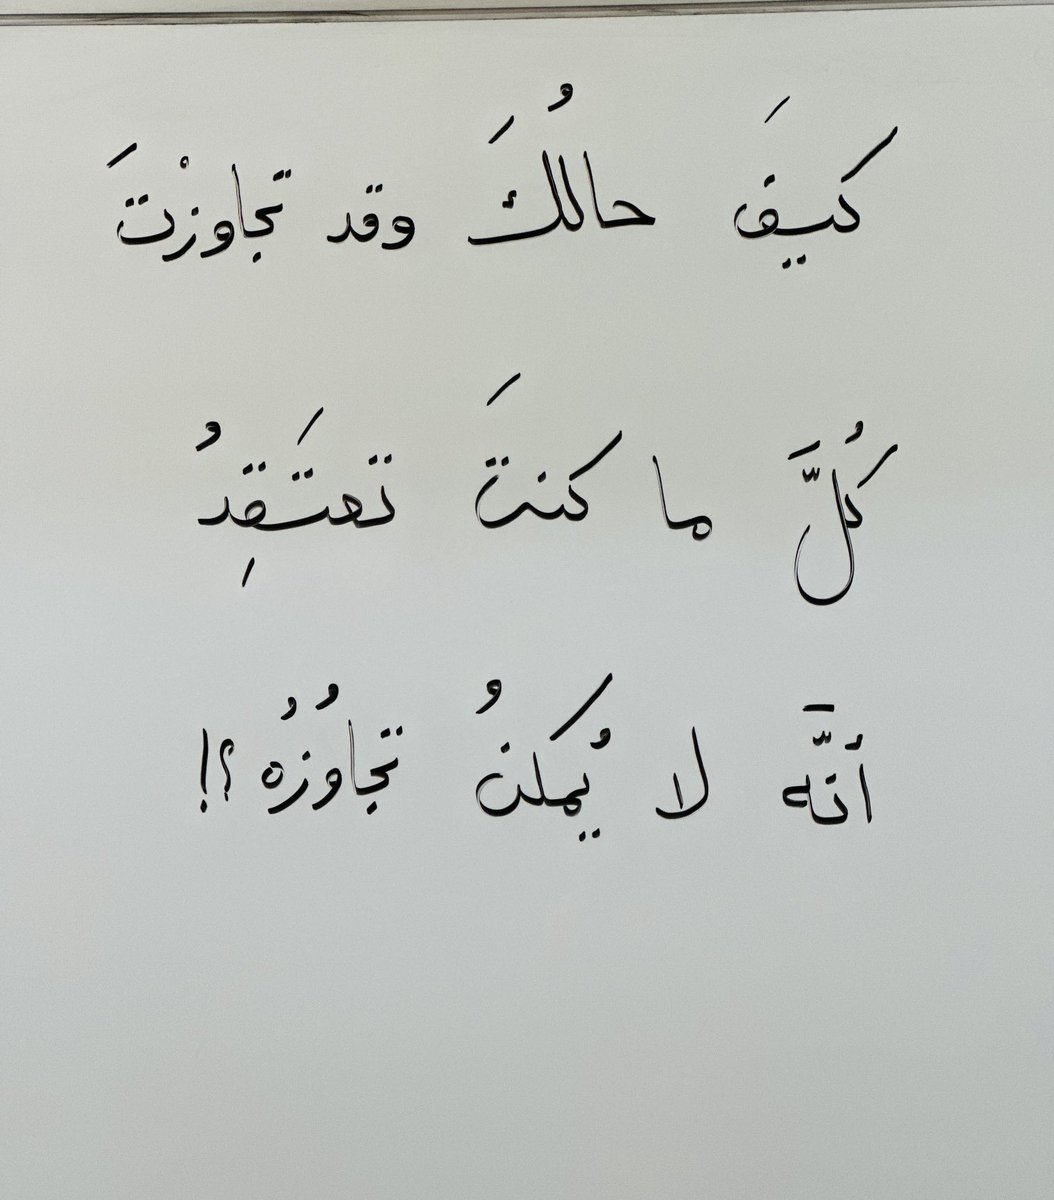 كيفَ حالُكَ وقد تجاوزْتَ
كُلَّ ما كنتَ تعتَقِدُ
أنَّه لا يُمكنُ تجاوُزُه ؟!